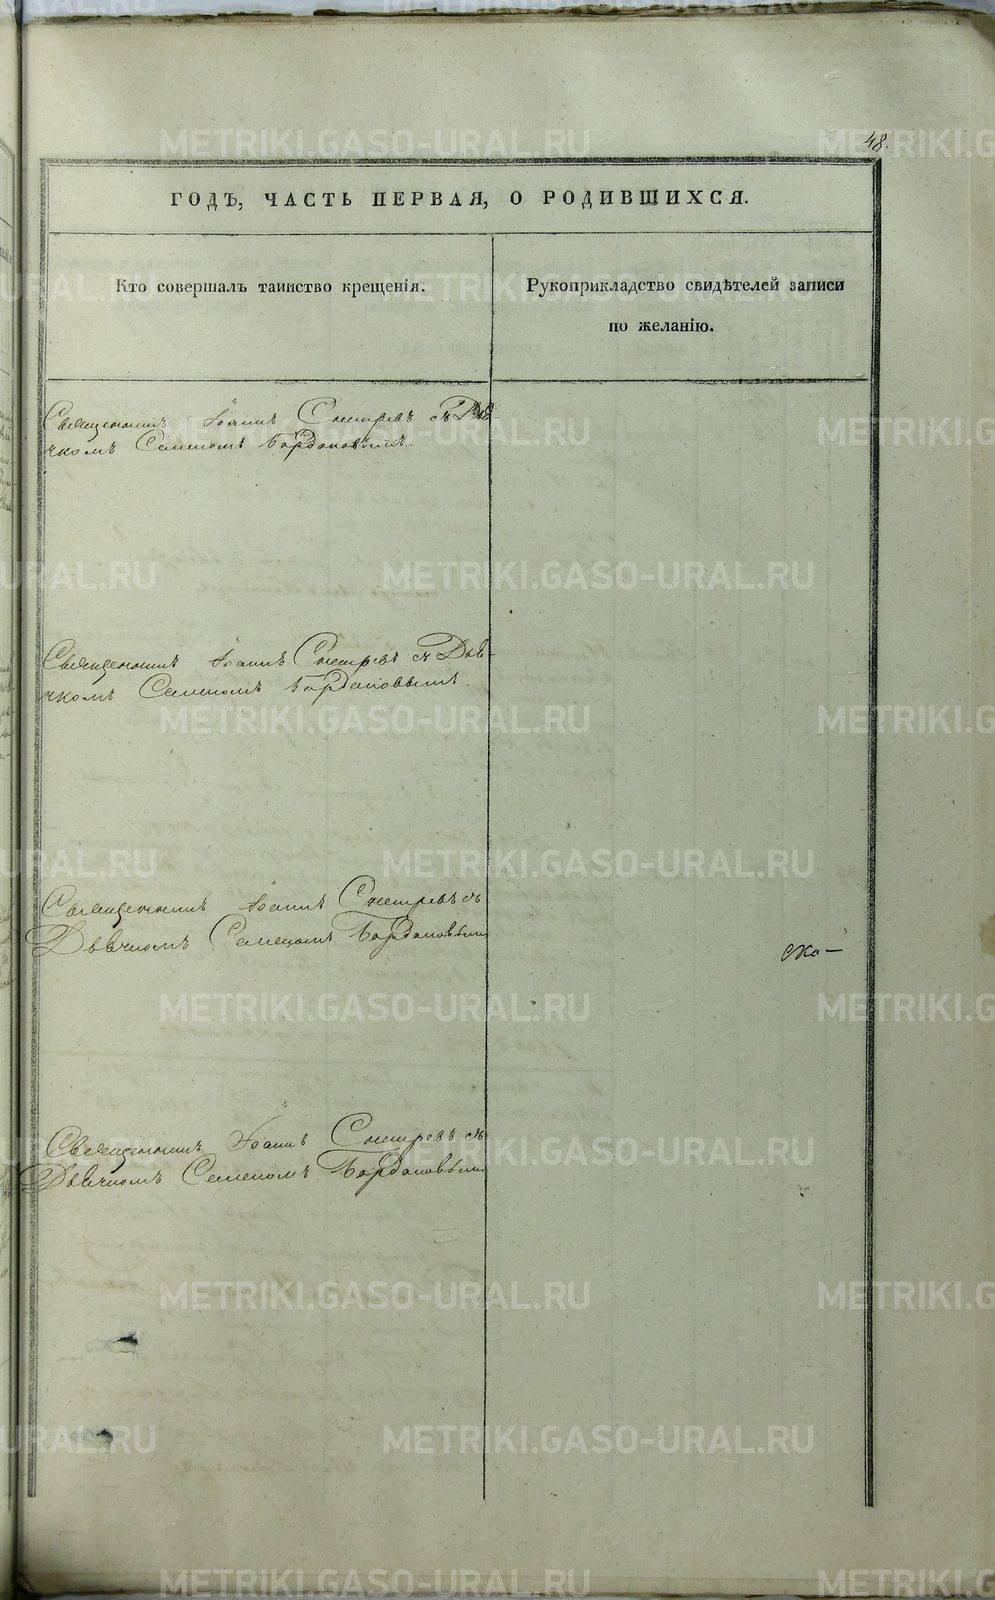 48.
ГОДЪ, ЧАСТЬ ПЕРВАЯ, О РОДИВШИХСЯ.
Кто совершалъ таинство крещенія.
Рукоприкладство свидѣтелей записи
по желанію.
Священникъ Іоаннъ Снегиревъ съ Дья-
чкомъ Семеномъ Бардановымъ.
Священникъ Іоаннъ Снегиревъ съ Дья-
чкомъ Семеномъ Бардановымъ.
Священникъ Іоаннъ Снегиревъ съ
Дьячкомъ Семеномъ Бардановымъ
Священникъ Іоаннъ Снегиревъ съ
Дьячкомъ Семеномъ Бардановымъ
METRIKI.GASO-URAL.RU